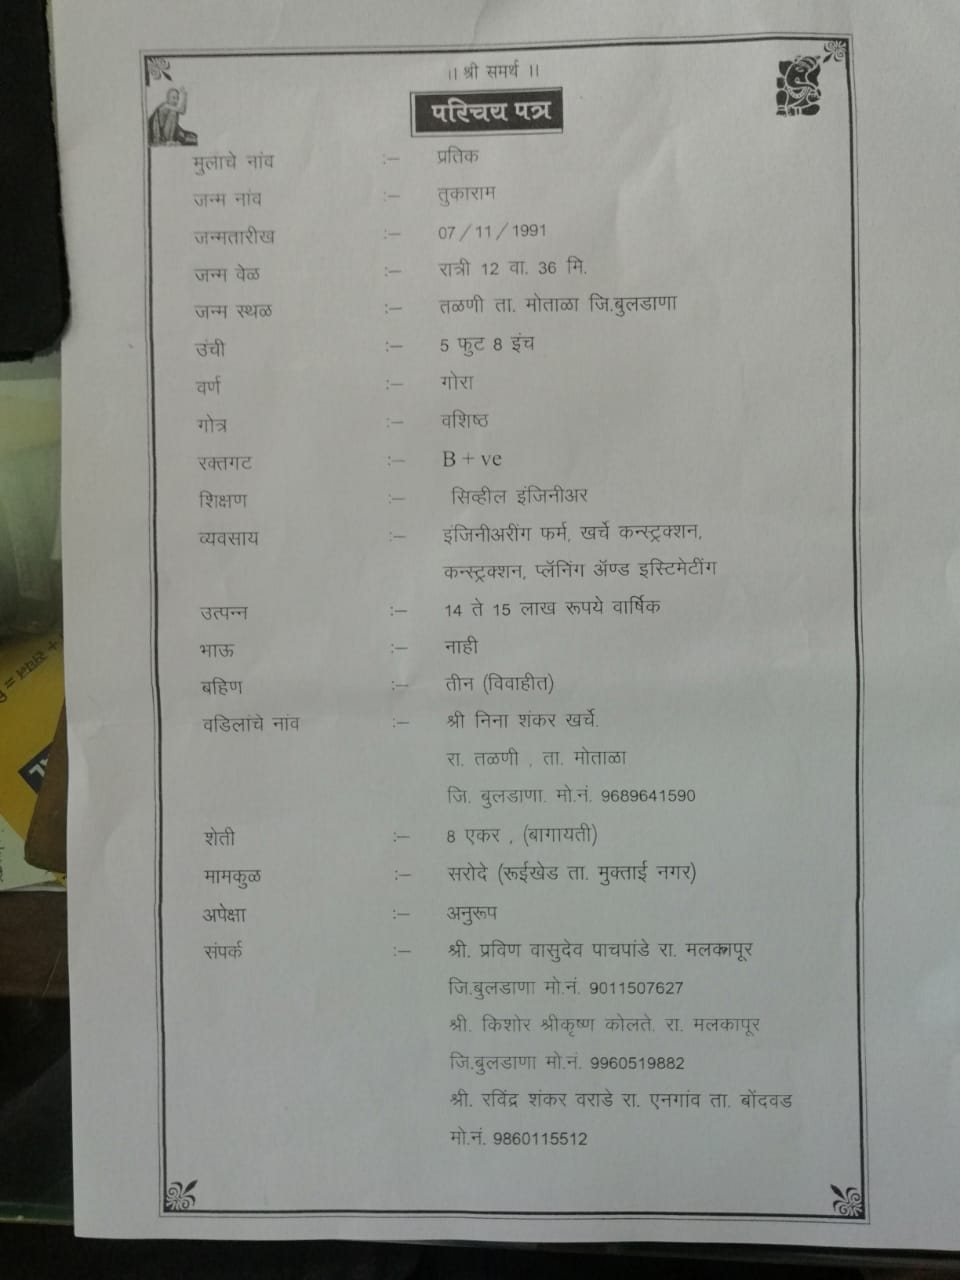 ।। श्री समर्थ ।।
परिचय पत्र
मुलाचे नांव :– प्रतिक
जन्म नांव :– तुकाराम
जन्मतारीख :– 07/11/1991
जन्म वेळ :– रात्री 12 वा. 36 मि.
जन्म स्थळ :– तळणी ता. मोताळा जि.बुलडाणा
उंची :– 5 फुट 8 इंच
वर्ण :– गोरा
गोत्र :– वशिष्ठ
रक्तगट :– B + ve
शिक्षण :– सिव्हील इंजिनीअर
व्यवसाय :– इंजिनीअरींग फर्म, खर्चे कन्स्ट्रक्शन,
कन्स्ट्रक्शन, प्लॅनिंग ॲण्ड इस्टिमेटींग
उत्पन्न :– 14 ते 15 लाख रूपये वार्षिक
भाऊ :– नाही
बहिण :– तीन (विवाहीत)
वडिलांचे नांव :– श्री निना शंकर खर्चे.
रा. तळणी , ता. मोताळा
जि. बुलडाणा. मो.नं. 9689641590
शेती :– 8 एकर , (बागायती)
मामकुळ :– सरोदे (रूईखेड ता. मुक्ताई नगर)
अपेक्षा :– अनुरूप
संपर्क :– श्री. प्रविण वासुदेव पाचपांडे रा. मलकापूर
जि.बुलडाणा मो.नं. 9011507627
श्री. किशोर श्रीकृष्ण कोलते. रा. मलकापूर
जि.बुलडाणा मो.नं. 9960519882
श्री. रविंद्र शंकर वराडे रा. एनगांव ता. बोंदवड
मो.नं. 9860115512